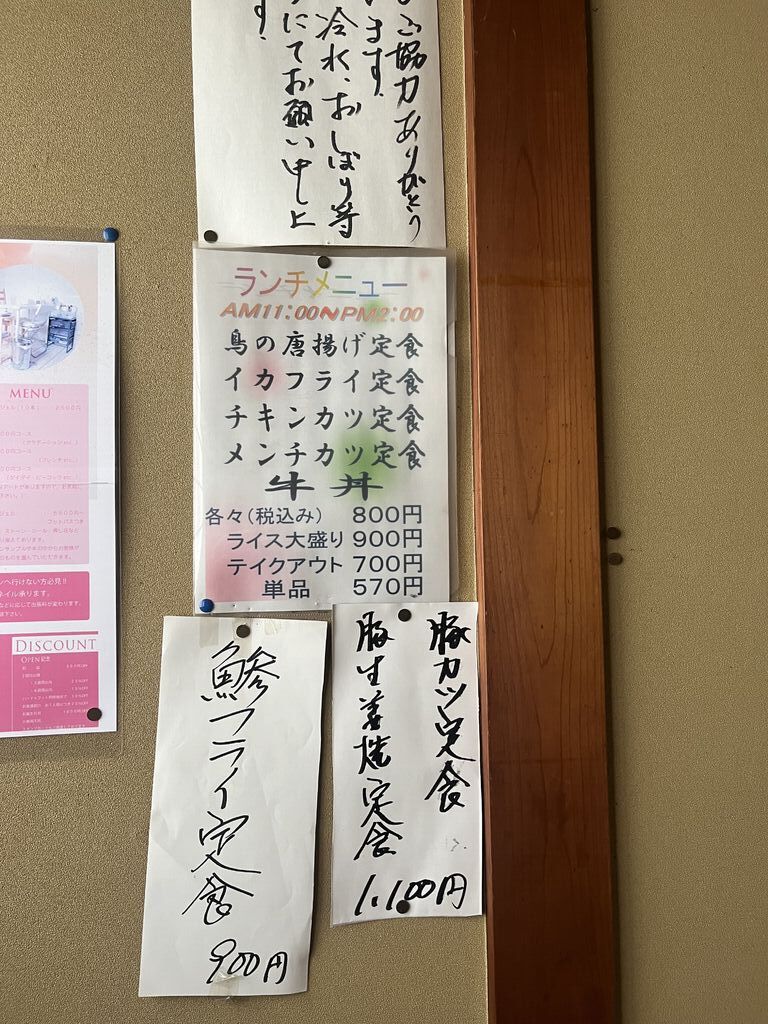 ご協力ありがとう
います。
冷水、おしぼり等
にてお願い申し上
す.
ランチメニュー
AM11:00~PM2:00
鳥の唐揚げ定食
イカフライ定食
チキンカツ定食
メンチカツ定食
牛丼
各々(税込み) 800円
ライス大盛り 900円
テイクアウト 700円
単品 570円
豚カツ定食
豚生姜焼定食
1,100円
鯵フライ定食
900円
MENU
ンへ行けない方必見!!
ネイル承ります。
DISCOUNT
OPEN記念